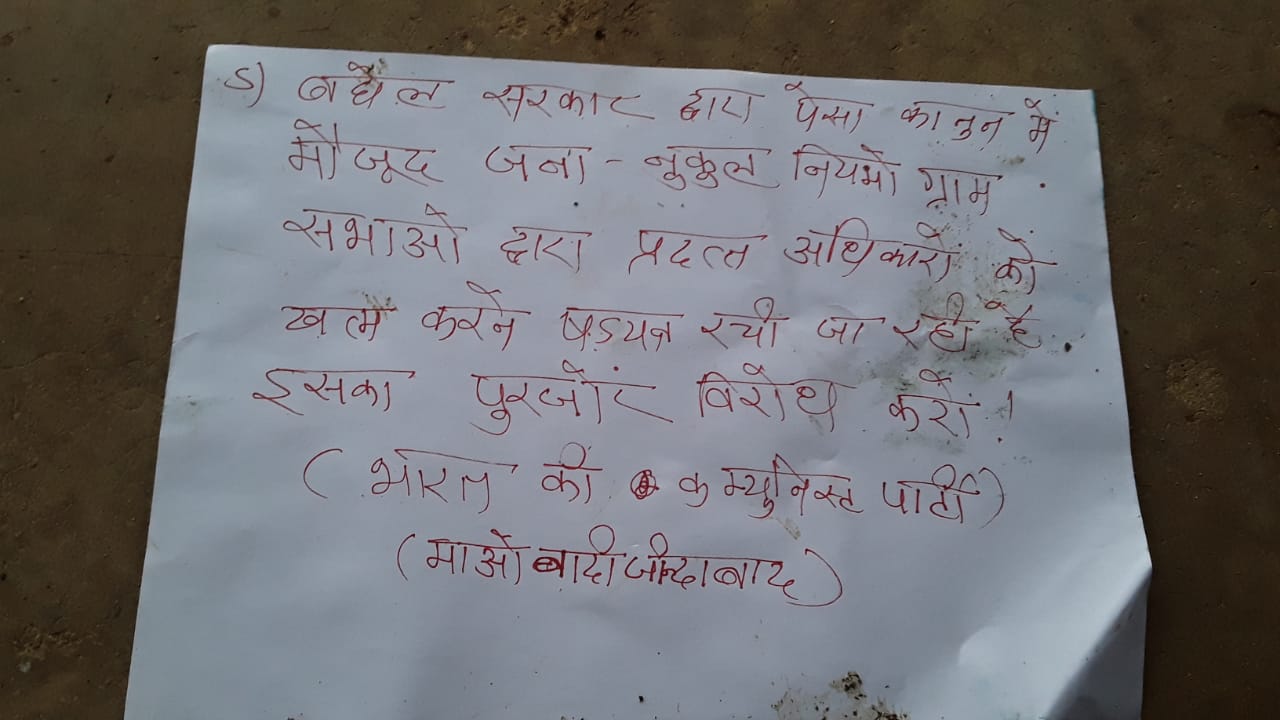 5) बघेल सरकार द्वारा पेसा कानुन में
मौजूद जना - नुकुल नियमो ग्राम
सभाओ द्वारा प्रदत्त अधिकारों को
खत्म करने षडयत्र रची जा रही है
इसका पुरजोंर विरोध करों।
(भारत की कम्युनिस्ट पार्टी)
(माओबादी जीन्दाबाद)